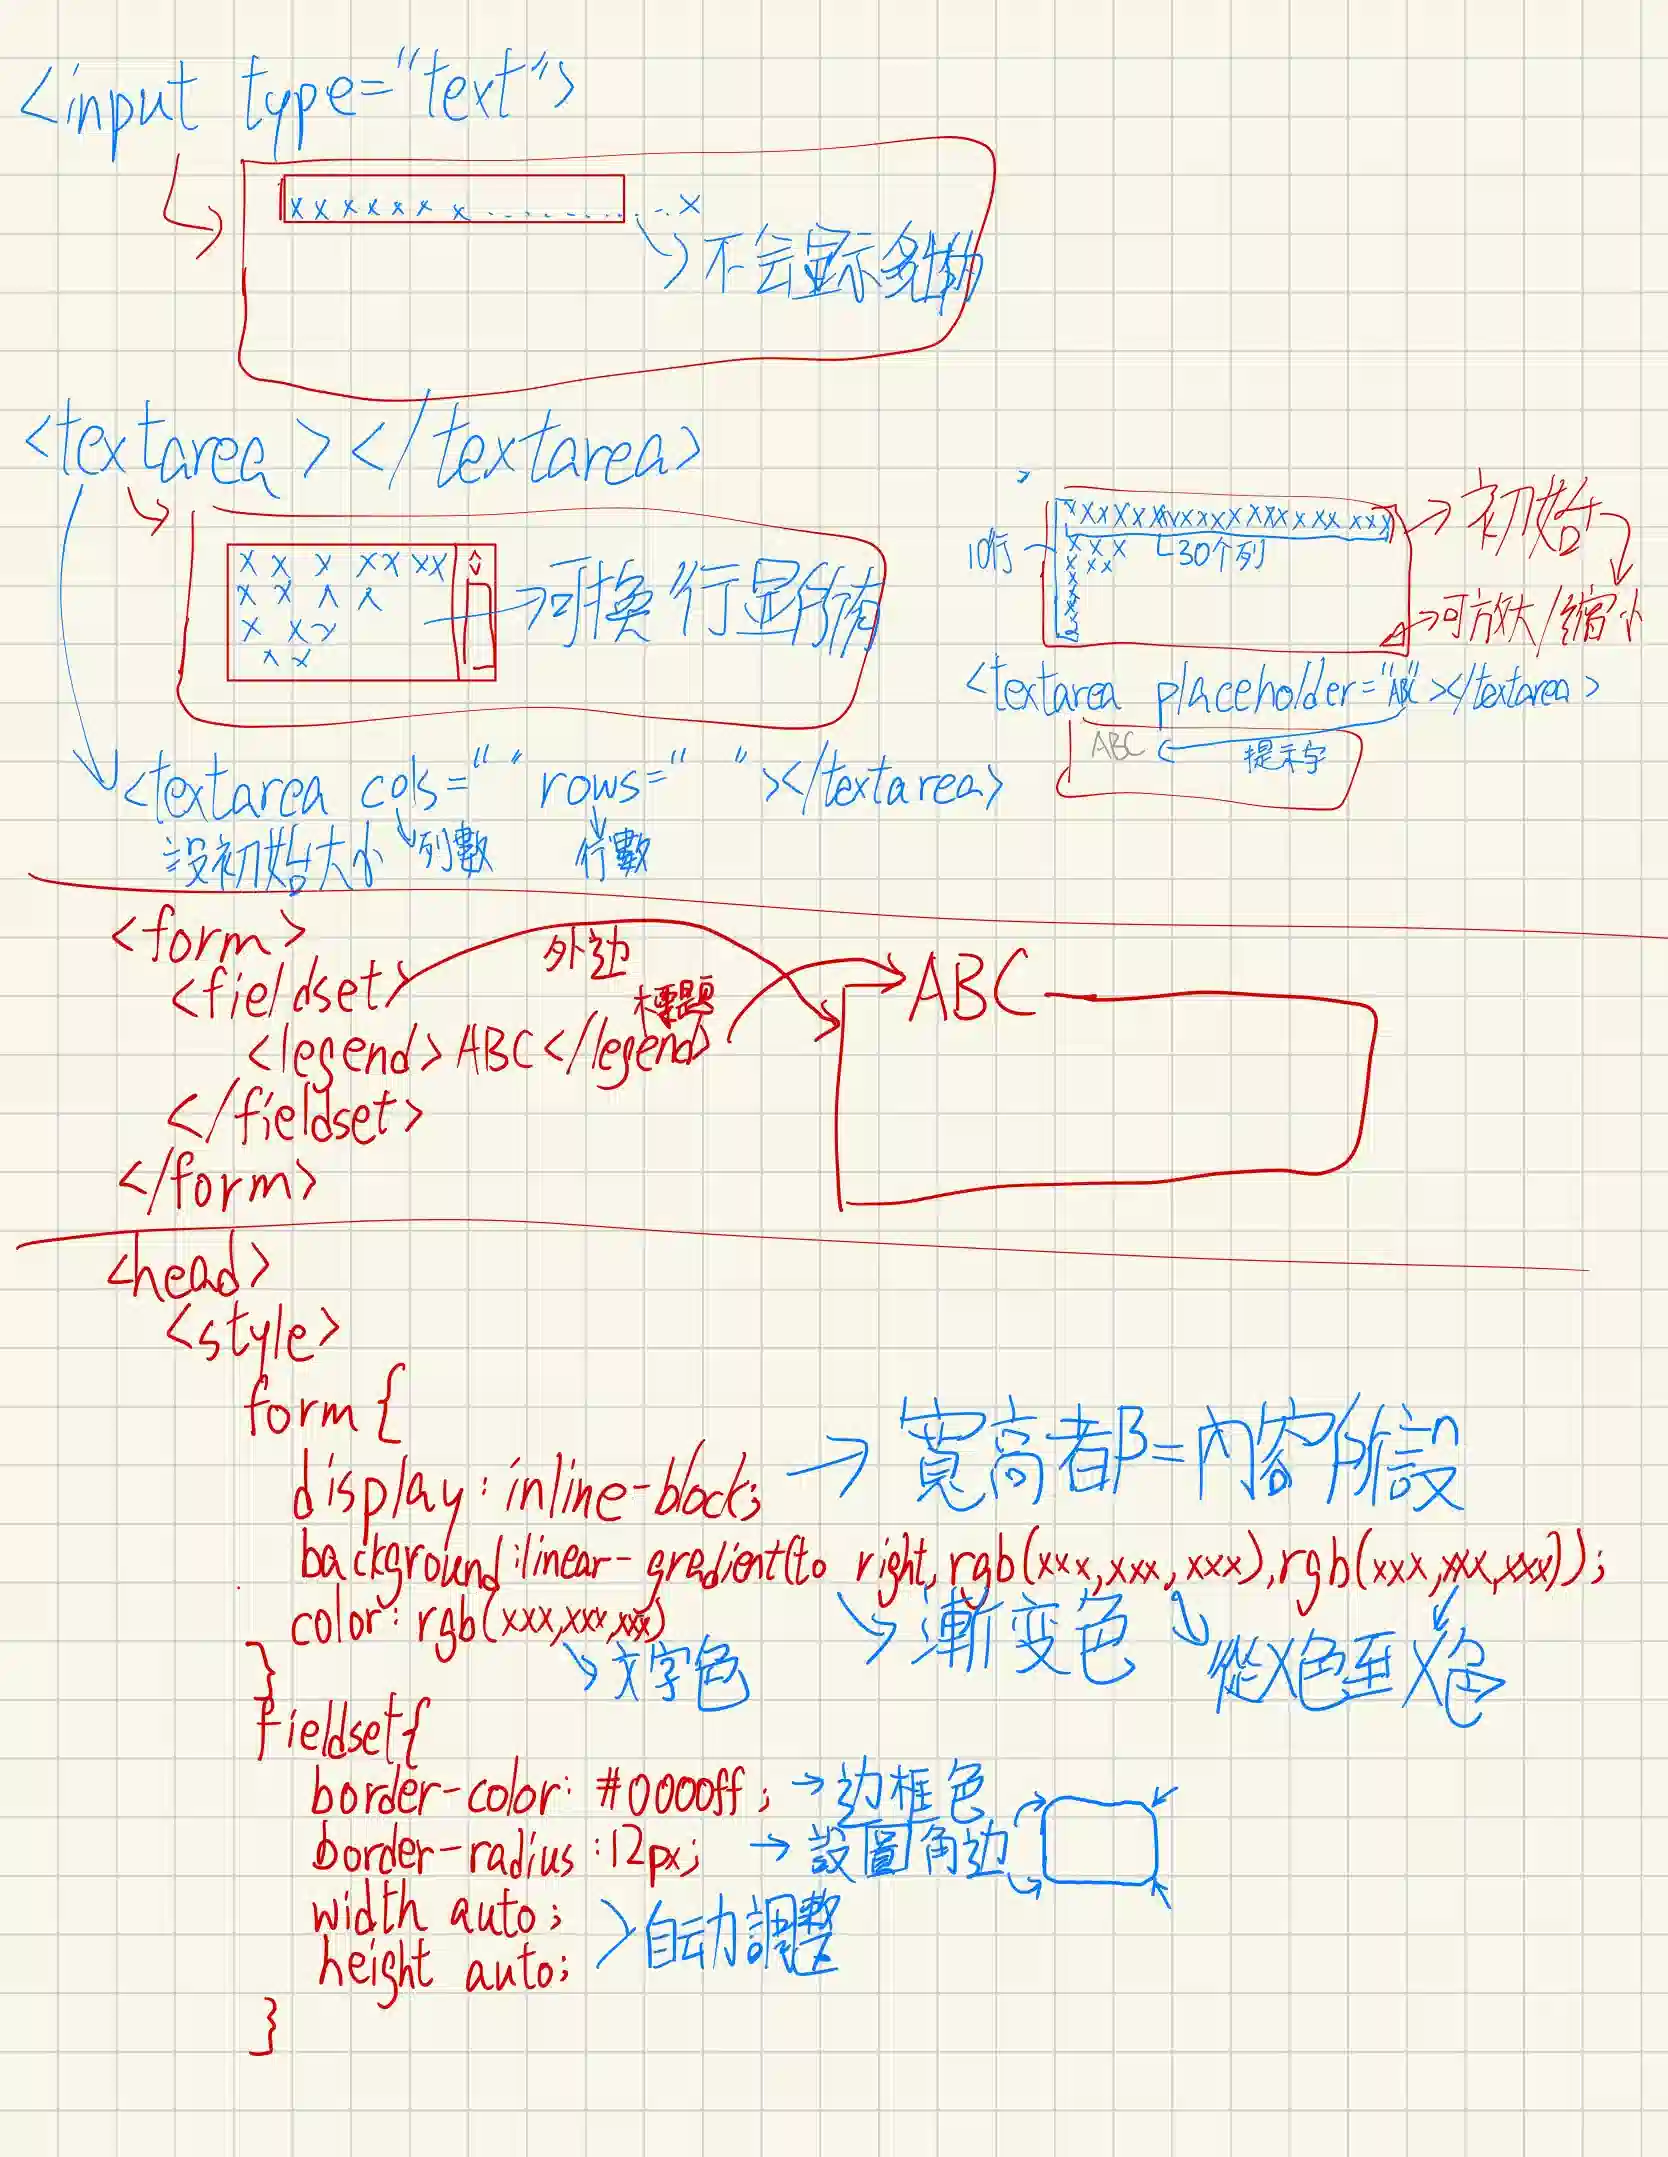 <input type="text">
xxxxxxx...........x
不会显示多出的
<textarea></textarea>
xxxxxxx
xxxx
xxx
xx
可換行显所有
xxxxxxxxxxxxxxxxxxxxx
10行
xxx
30个列
xxx
初始
可放大/縮小
<textarea placeholder="ABC"></textarea>
ABC
提示字
<textarea cols=" " rows=" "></textarea>
設初始大小
列數
行數
<form>
<fieldset>
外边
標題
<legend>ABC</legend>
ABC
</fieldset>
</form>
<head>
<style>
form{
display:inline-block;
寬高都=內容所設
background:linear-gradient(to right,rgb(xxx,xxx,xxx),rgb(xxx,xxx,xxx));
color:rgb(xxx,xxx,xxx)
漸变色
從X色至X色
}
文字色
fieldset{
border-color:#0000ff;
边框色
border-radius:12px;
設圓角边
width auto;
height auto;
自动調整
}